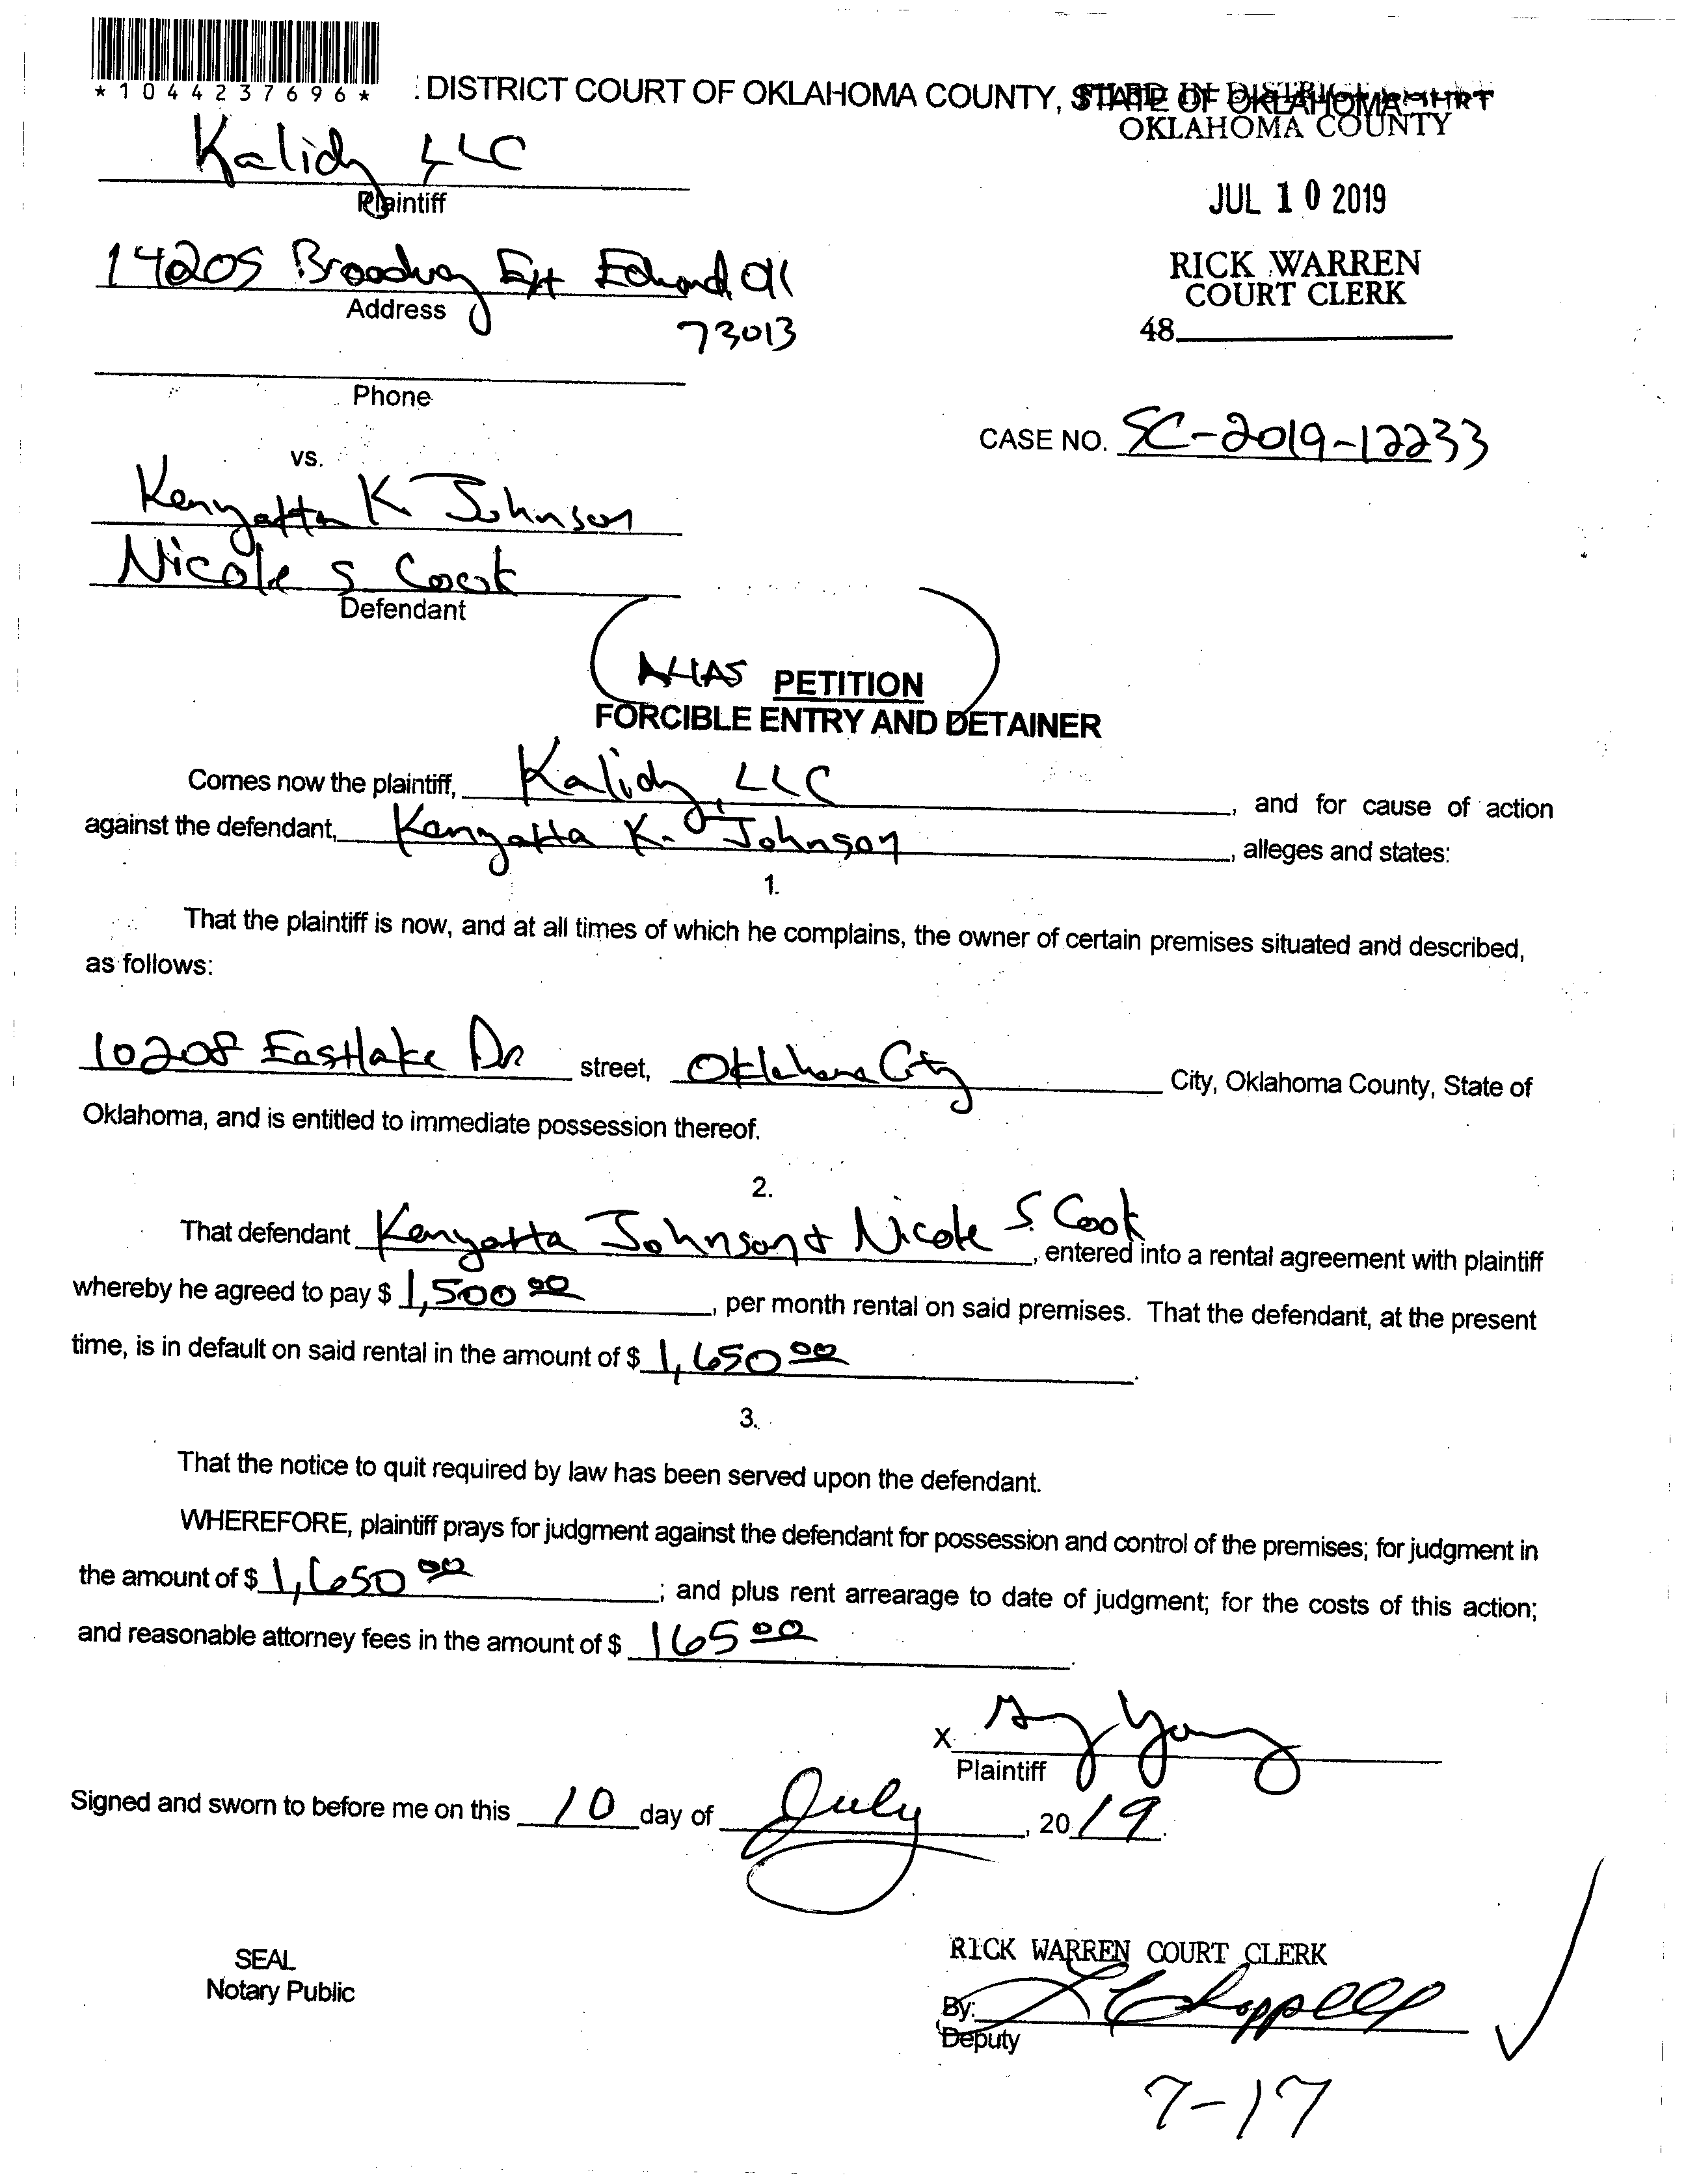 *1044237696*
DISTRICT COURT OF OKLAHOMA COUNTY, STATE OF OKLAHOMA
FILED IN DISTRICT COURT
OKLAHOMA COUNTY
Kalidy LLC
Plaintiff
JUL 10 2019
14205 Broadway Ext Edmond OK
Address
73013
RICK WARREN
COURT CLERK
48
Phone
CASE NO. SC-2019-12233
vs.
Kenyatta K Johnson
Nicole S Cook
Defendant
ALIAS PETITION
FORCIBLE ENTRY AND DETAINER
Comes now the plaintiff, Kalidy, LLC, and for cause of action
against the defendant, Kenyatta K. Johnson, alleges and states:
1.
That the plaintiff is now, and at all times of which he complains, the owner of certain premises situated and described,
as follows:
10208 Eastlake Dr street, Oklahoma City City, Oklahoma County, State of
Oklahoma, and is entitled to immediate possession thereof.
2.
That defendant Kenyatta Johnson & Nicole S. Cook, entered into a rental agreement with plaintiff
whereby he agreed to pay $ 1,500 00, per month rental on said premises. That the defendant, at the present
time, is in default on said rental in the amount of $ 1,650 00.
3.
That the notice to quit required by law has been served upon the defendant.
WHEREFORE, plaintiff prays for judgment against the defendant for possession and control of the premises; for judgment in
the amount of $ 1,650 00; and plus rent arrearage to date of judgment; for the costs of this action;
and reasonable attorney fees in the amount of $ 165 00.
X
Plaintiff
Signed and sworn to before me on this 10 day of July, 2019.
SEAL
Notary Public
RICK WARREN COURT CLERK
By: Chappell
Deputy
7-17